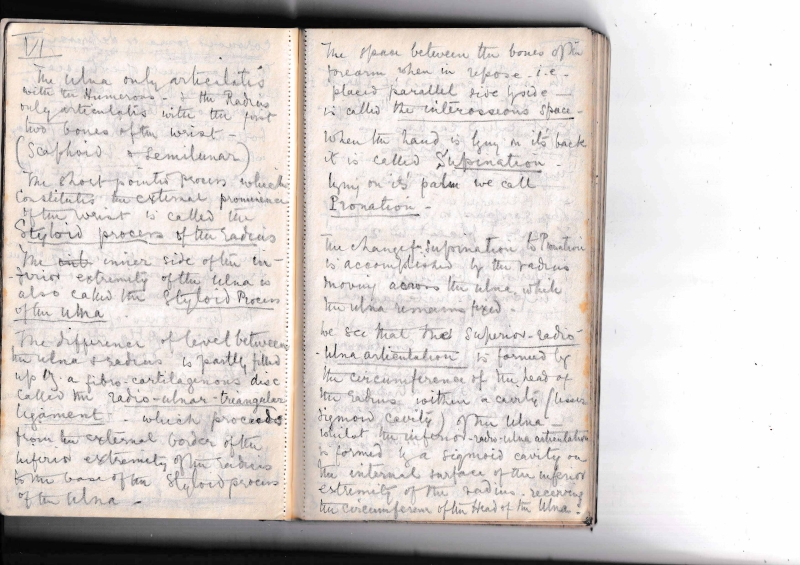 VI
The ulna only articulatis
with the Humerous - & the Radius
only articulatis with the first
two bones of the wrist -
(Scaphoid & Semilunar)
The short pointed process which
constitutes the external prominence
of the wrist is called the
Styloid process of the radius
The inner side of the in-
-ferior extremity of the ulna is
also called the Styloid Process
of the ulna
The difference of level between
the ulna & radius is partly filled
up by a fibro-cartilagenous disc
called the radio-ulnar-triangular
ligament - which proceeds
from the external border of the
inferior extremity of the radius
to the base of the Styloid process
of the ulna -
The space between the bones of the
forearm when in repose - i.e -
placed parallel side by side -
is called the interosseous space -
When the hand is lying on it's back
it is called Supination -
lying on it's palm we call
Pronation -
The change from supination to Pronation
is accomplished by the radius
moving across the ulna while
the ulna remains fixed -
We see that the superior-radio-
-ulna articulation is formed by
the circumference of the head of
the radius within a cavity (lesser
sigmoid cavity) of the ulna -
whilst the inferior-radio-ulna articulation
is formed by a sigmoid cavity on
the internal surface of the inferior
extremity of the radius - receiving
the circumference of the Head of the Ulna -